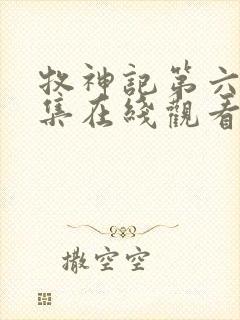 牧神記第六
集在綫觀看
撒空空